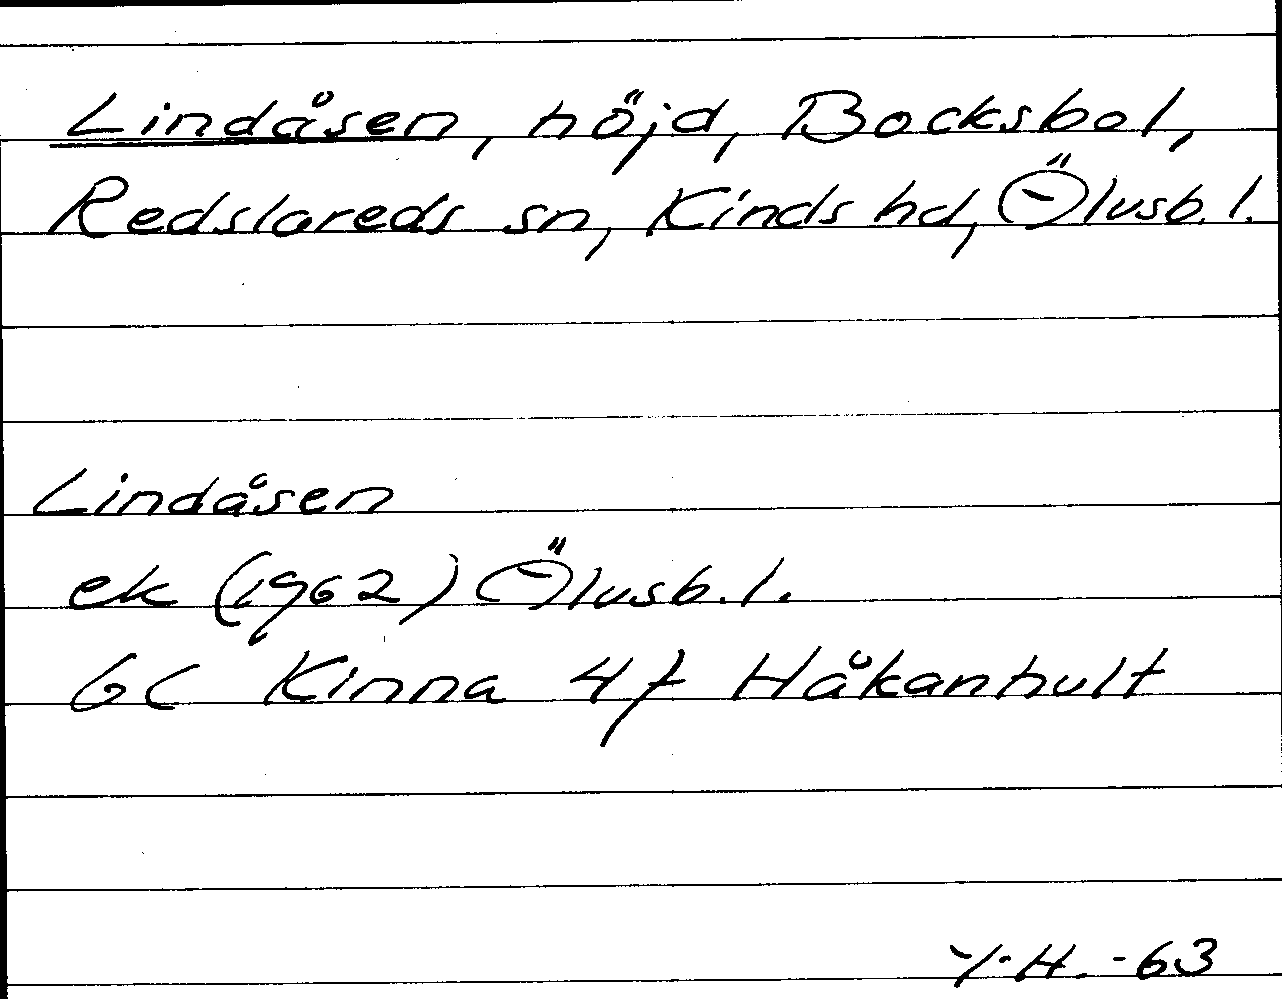 Lindåsen, höjd, Bocksbol,
Redslareds sn, Kinds hd, Ölvsb. l.
Lindåsen
ek (1962) Ölvsb. l.
6C Kinna 4f Håkanhult
Y.H. -63